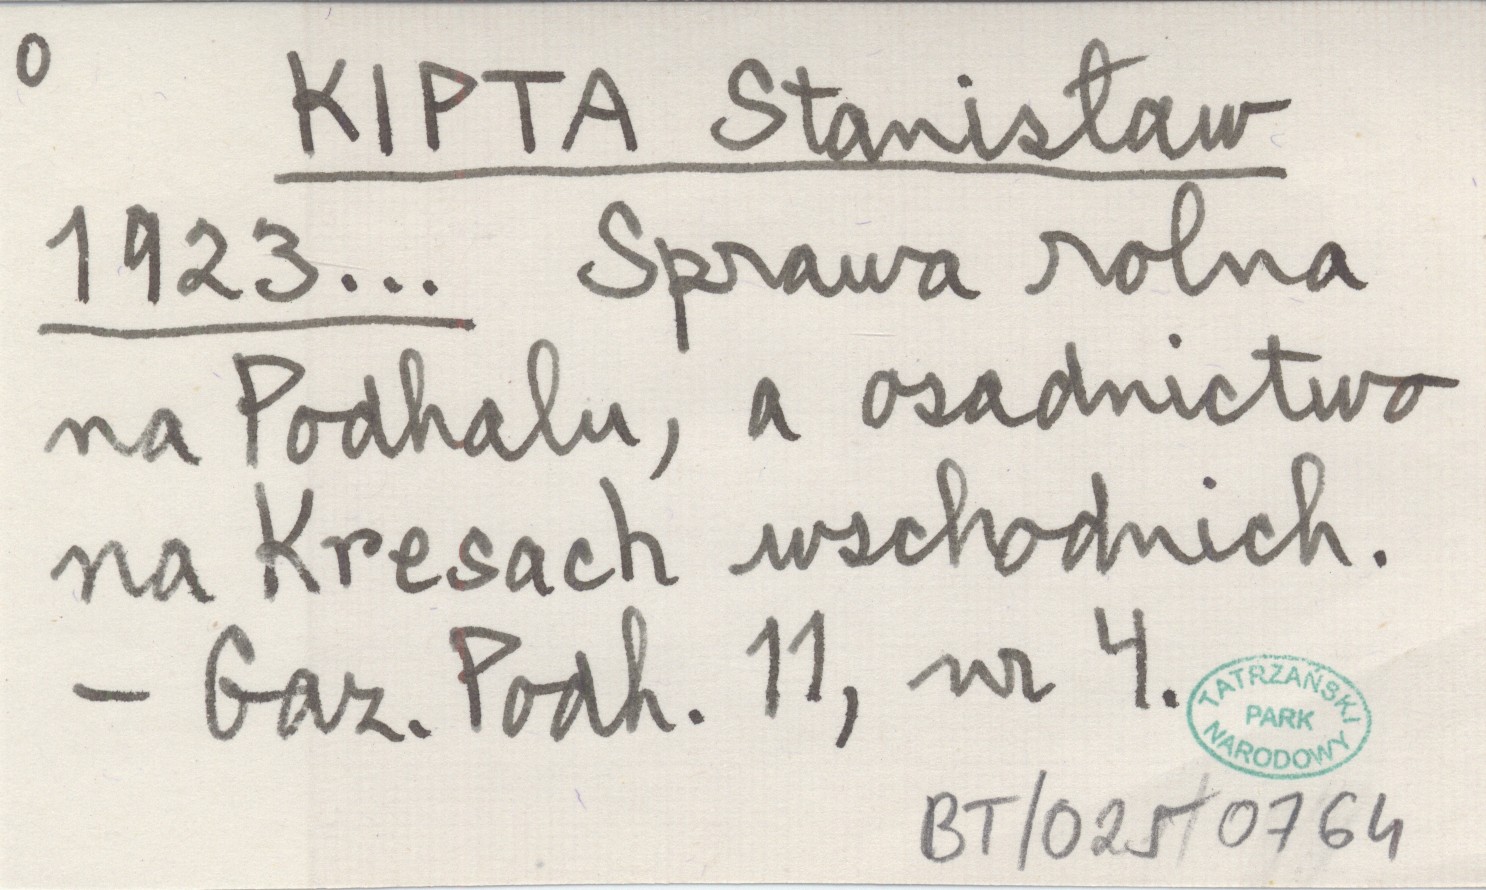 o
KIPTA Stanisław
1923... Sprawa rolna
na Podhalu, a osadnictwo
na Kresach wschodnich.
– Gaz. Podh. 11, nr 4.
TATRZAŃSKI
PARK
NARODOWY
BT/025/0764